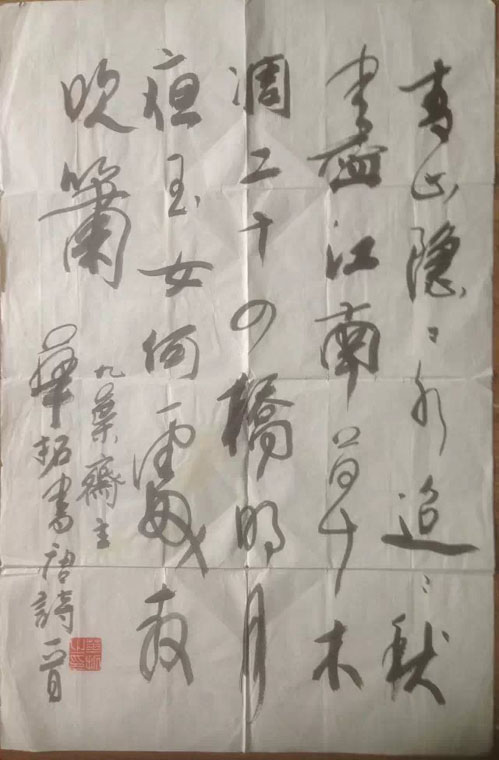 青山隐〻水迢〻秋
盡江南草木
凋二十四橋明月
夜玉女何處教
吹簫
九葉齋主
華拓書唐詩一首